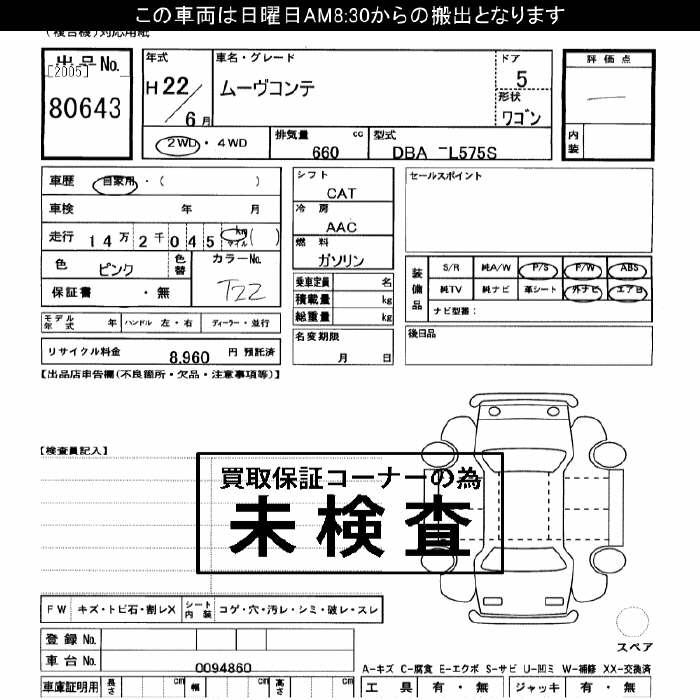 この車両は日曜日AM8:30からの搬出となります
(複合機)対応用紙
出品No.
[2005]
80643
年式
H22/6月
車名・グレード
ムーヴコンテ
ドア
5
形状
ワゴン
評価点
内装
2WD・4WD
排気量 cc
660
型式
DBA-L575S
車歴 自家用・( )
車検 年 月
走行 14万2千045 km マイル ( )
色 ピンク 色替
カラーNo.
T22
保証書 ・無
モデル年式 年 ハンドル 左・右 ディーラー・並行
リサイクル料金 8,960 円 預託済
シフト
CAT
冷房
AAC
燃料
ガソリン
乗車定員 名
積載量 kg
総重量 kg
名変期限
月 日
セールスポイント
装備品
S/R 純A/W P/S P/W ABS
純TV 純ナビ 革シート 外ナビ エアB
ナビ型番:
後日品
【出品店申告欄(不良箇所・欠品・注意事項等)】
【検査員記入】
買取保証コーナーの為
未検査
FW キズ・トビ石・割レX シート内装 コゲ・穴・汚レ・シミ・破レ・スレ
登録No.
車台No. 0094860
スペア
A-キズ C-腐食 E-エクボ S-サビ U-凹ミ W-補修 XX-交換済
車庫証明用 長さ cm 幅 cm 高さ cm
工具 有・無 ジャッキ 有・無